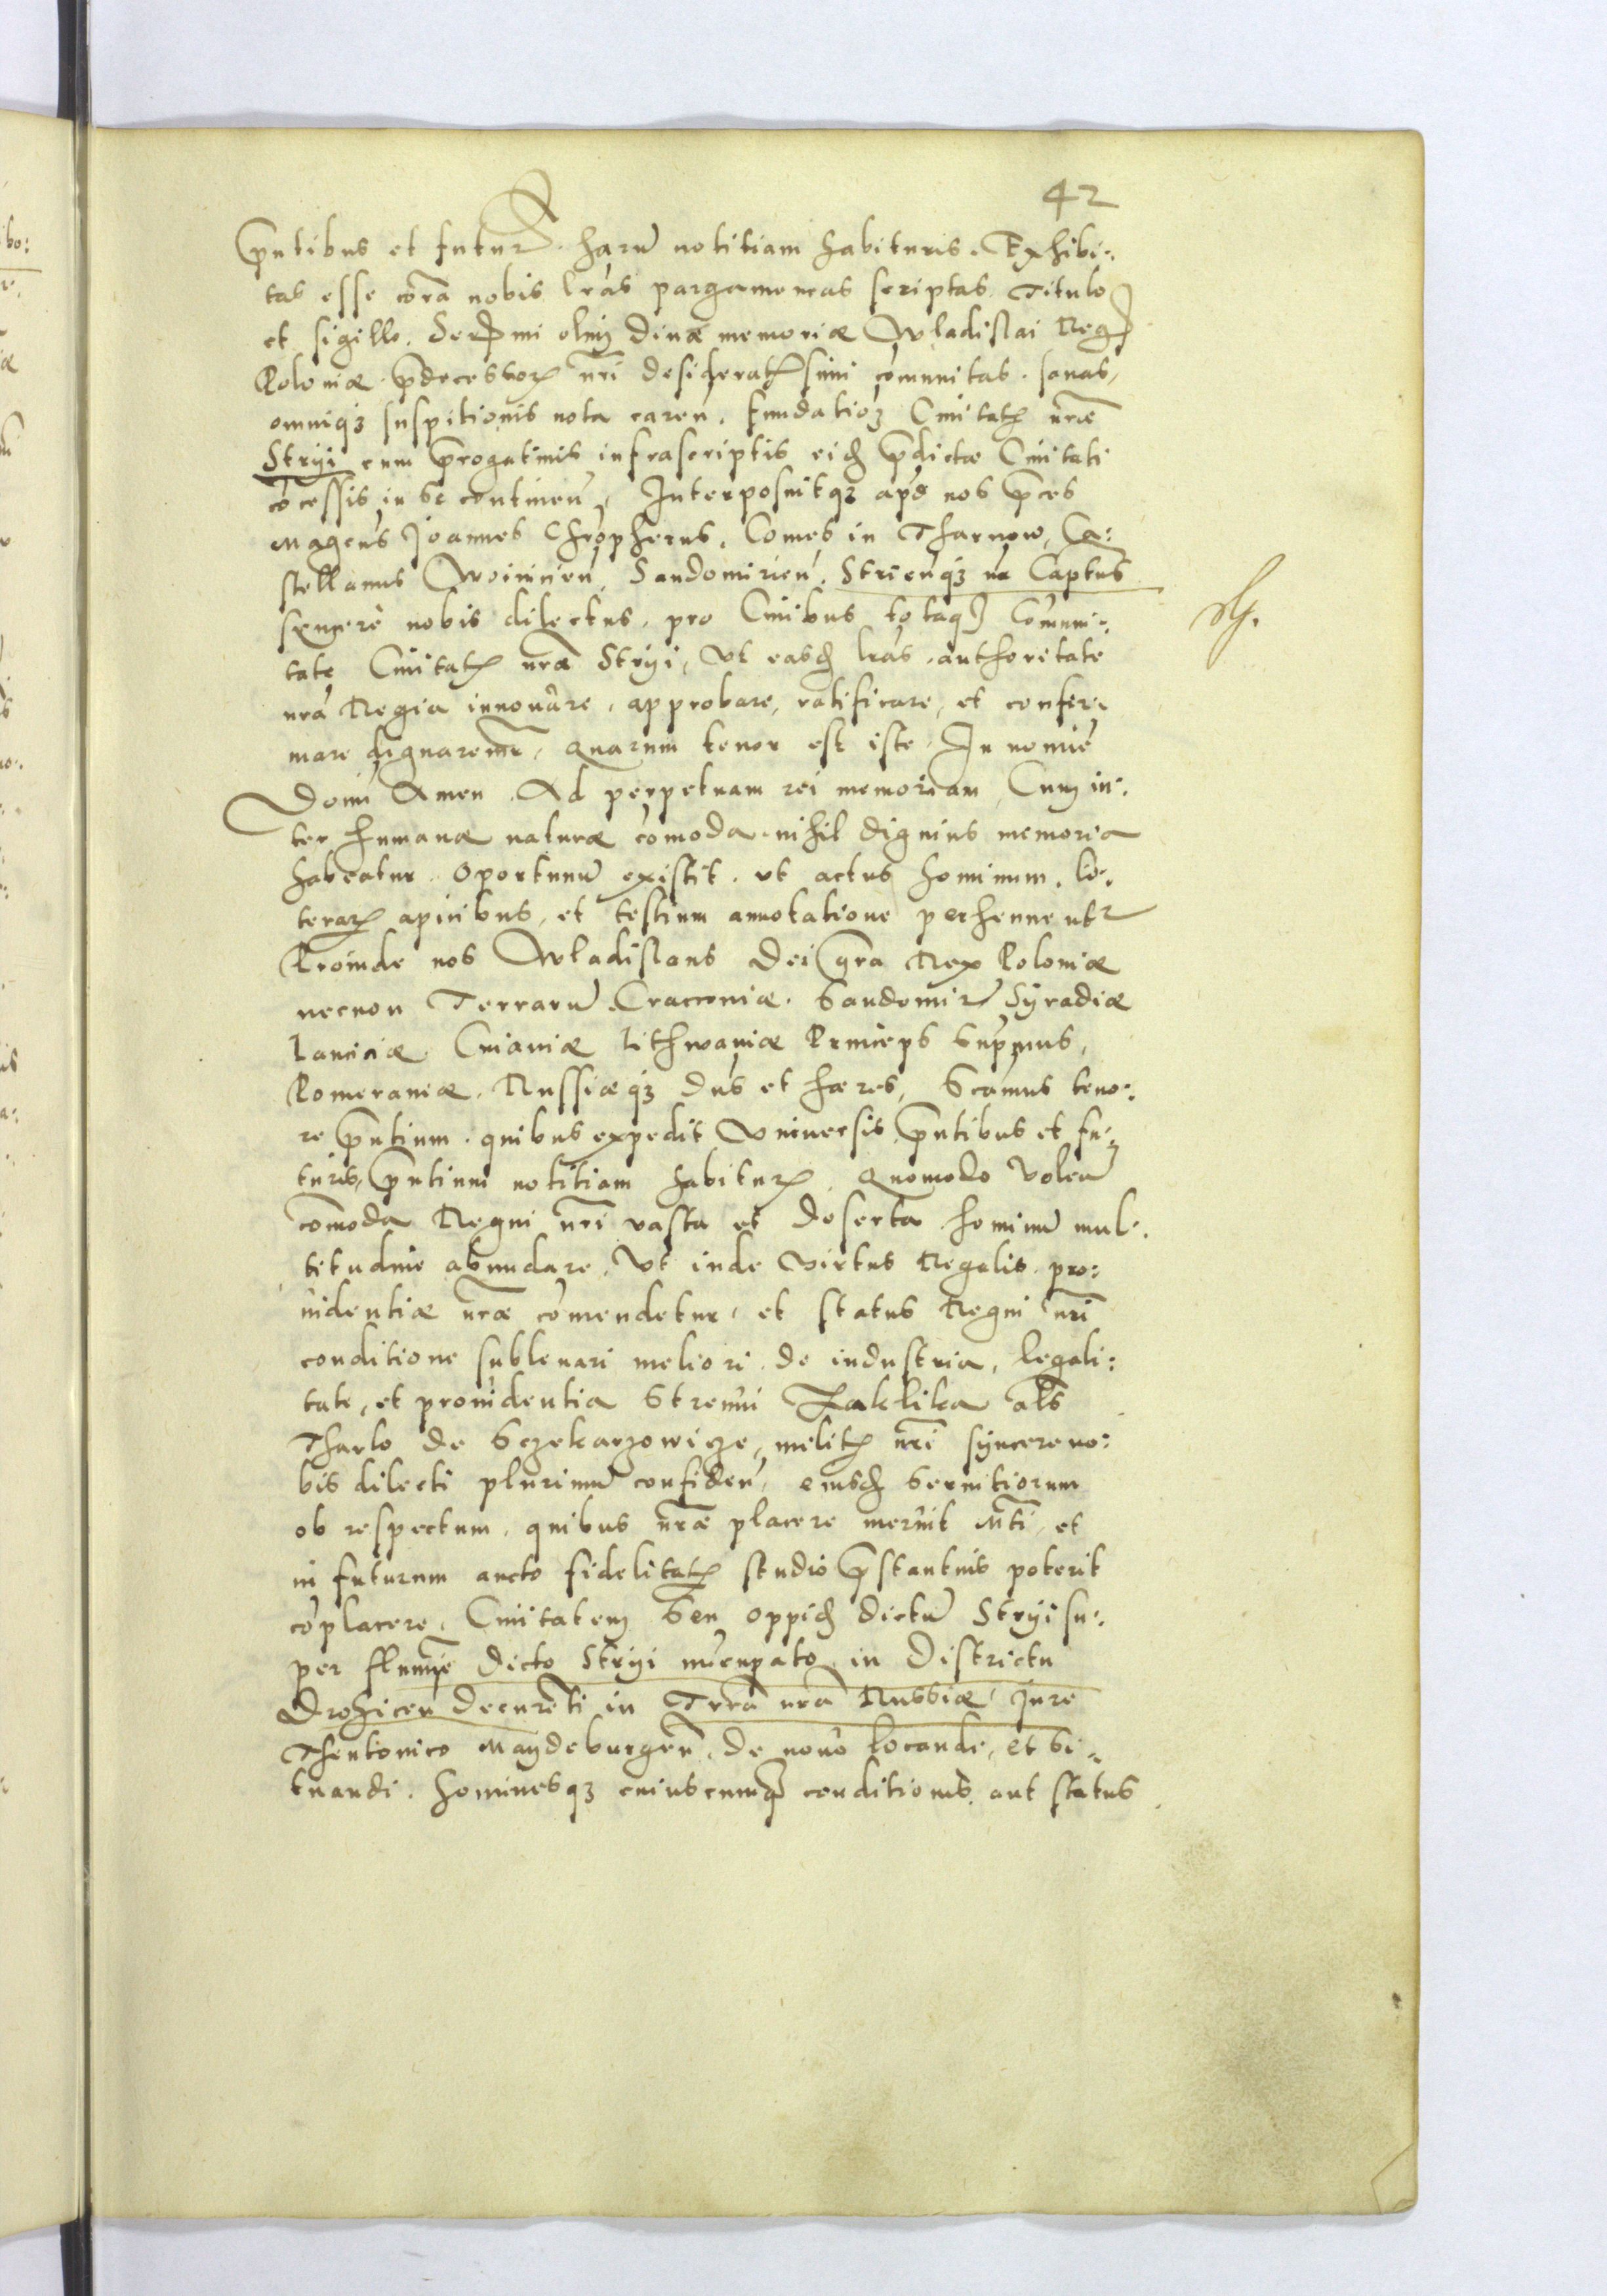 42
pntibus et futur. harū notitiam habituris. Exhibi:
tas esse corā nobis lrās pargameneas scriptas Titulo
et sigillo. Sermi olim Diuæ memoriæ Wladislai Reg
Poloniæ prdecessor nri desideratissimi comunitas. sanas,
omniq3 suspitionis nota careñ. Fundatioz Ciuitatis nræ
Stryi cum prrogatiuis infrascriptis eid prdictæ Ciuitati
cōcessis in se contineñ. Interposuitq3 apd nos prces
Magcus Joannes Chropherus, Comes in Tharnow, Ca:
stellanus Woiniceñ, Sandomirieñ. Strieñq3 Captus
syncere nobis dilectus, pro Ciuibus totaq Comuni:
tate Ciuitatis nræ Stryi, Vt easd lras authoritate
nrā Regia innouare, approbare, ratificare, et confir:
mare dignaremr. Quarum tenor est iste. In nomīe
Domī Amen. Ad perpetuam rei memoriam, Cum in:
ter humanæ naturæ cōmoda nihil dignius memoria
habeatur. Oportunū existit. vt actus hominum. li:
terar apicibus, et testium annotatione perhennentr
Proinde nos Wladislaus Dei gra Rex Poloniæ
necnon Terrarū Cracouiæ. Sandomir Syradiæ
Lanciciæ Cuiauiæ Lithwaniæ Princeps supmus,
Pomeraniæ. Russiæq3 Dns et hæres, Scamus teno:
re pntium. quibus expedit Vniuersis pntibus et fu:
turis, pntium notitiam habitur. Quomodo voleñ
cōmoda Regni nri vasta et deserta hominū mul:
titudine abundare. Vt inde virtus Regalis pro:
uidentiæ nræ cōmendetur, et status Regni nri
conditione subleuari meliori. de industria, legali:
tate, et prouidentia Strenui Zaklika als
Tharlo de Sczekarzowicze, militis nri syncere no:
bis dilecti plurimū confideñ, eiusd Seruitiorum
ob respectum. quibus nræ placere meruit Mti, et
in futurum aucto fidelitatis studio prstantius poterit
cōplacere, Ciuitatem seu oppid dictū Stryi su:
per flumīe dicto Stryi nūcupato, in Districtu
Drohiceñ decureti in Trrā nrā Russiæ, Jure
Theutonico Maydeburgeñ, de nouo locandi, et si:
tuandi. hominesq3 cuiuscumq conditionis aut status